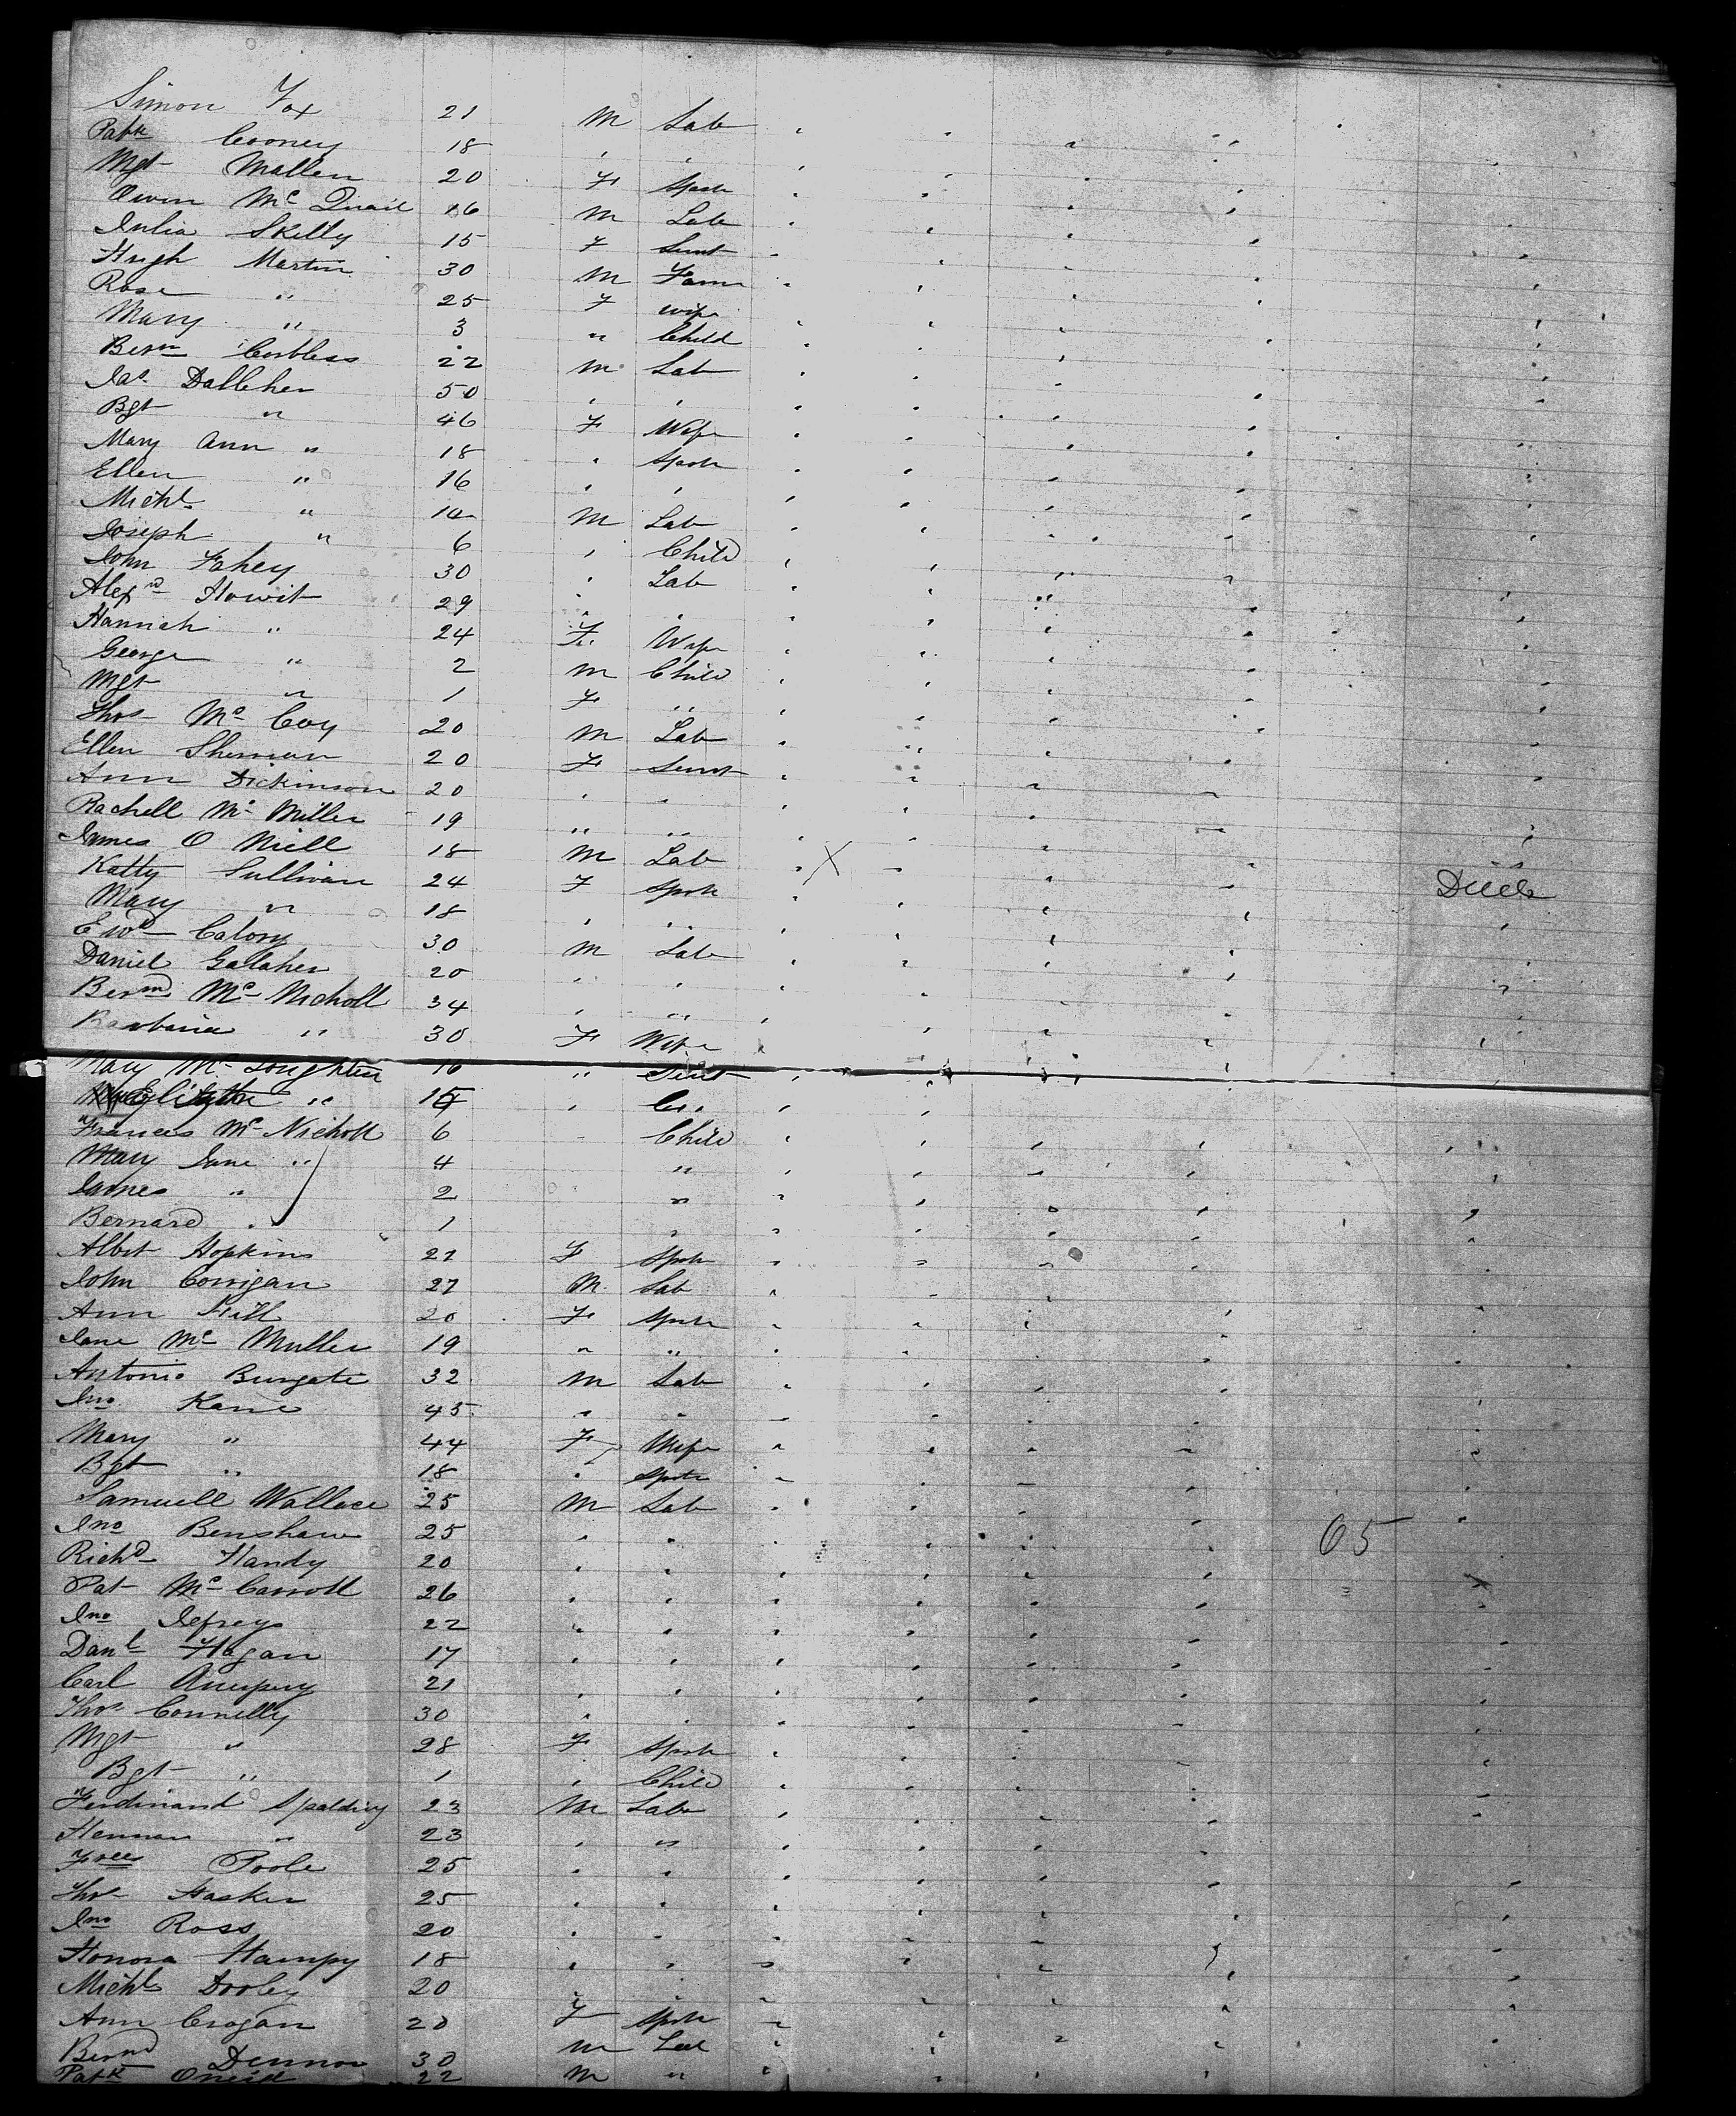 Simon Fox 21 M Lab
Patk Cooney 18 " "
Mgt Mallen 20 F Spstr
Owen McQuail 16 M Lab
Julia Skelly 15 F Servt
Hugh Martin 30 M Farmr
Rose " 25 F wife
Mary " 3 " Child
Bern Corbless 22 M Lab
Jas. Dalleher 50 " "
Bgt " 46 F Wife
Mary Ann " 18 " Spstr
Ellen " 16 " "
Michl " 14 M Lab
Joseph " 6 " Child
John Fahey 30 " Lab
Alexr Howit 29 " "
Hannah " 24 F Wife
George " 2 M Child
Mgt " 1 F "
Thos McCoy 20 M Lab
Ellen Shernan 20 F Servt
Ann Dickinson 20 " "
Rachell McMiller 19 " "
James O Niell 18 M Lab X
Katty Sullivan 24 F Spstr Died
Mary " 18 " "
Ewd Catory 30 M Lab
Daniel Galaher 20 " "
Bernd McNicholl 34 " "
Barbaria " 30 F Wife
Mary McLoughlin 16 " Servt
" 15 "
Frances McNicholl 6 Child
Mary Jane " 4 "
James " 2 "
Bernard " 1 "
Albert Hopkins 21 F Spstr
John Corrigan 27 M. Lab
Ann Hill 20 F Spstr
Jane McMullen 19 " "
Antonio Burgate 32 M Lab
Jno. Kane 45 " "
Mary " 44 F Wife
Bgt " 18 " Spstr
Samuell Wallace 25 M Lab
Jno Benshaw 25 " " 65
Richd Handy 20 " "
Pat McCarroll 26 " "
Jno Jefreys 22 " "
Danl Hagan 17 " "
Carl 21 " "
Thos Connelly 30 " "
Mgt " 28 F Spstr
Bgt " 1 " Child
Ferdinand Spalding 23 M Lab
Herman " 23 " "
Poole 25 " "
Thos Hasker 25 " "
Jno Ross 20 " "
Honora Hampy 18 " "
Michl Dooley 20 " "
Ann Crogan 20 F Spstr
Bernd Dennon 30 M Lab
Patk Oneil 22 M "